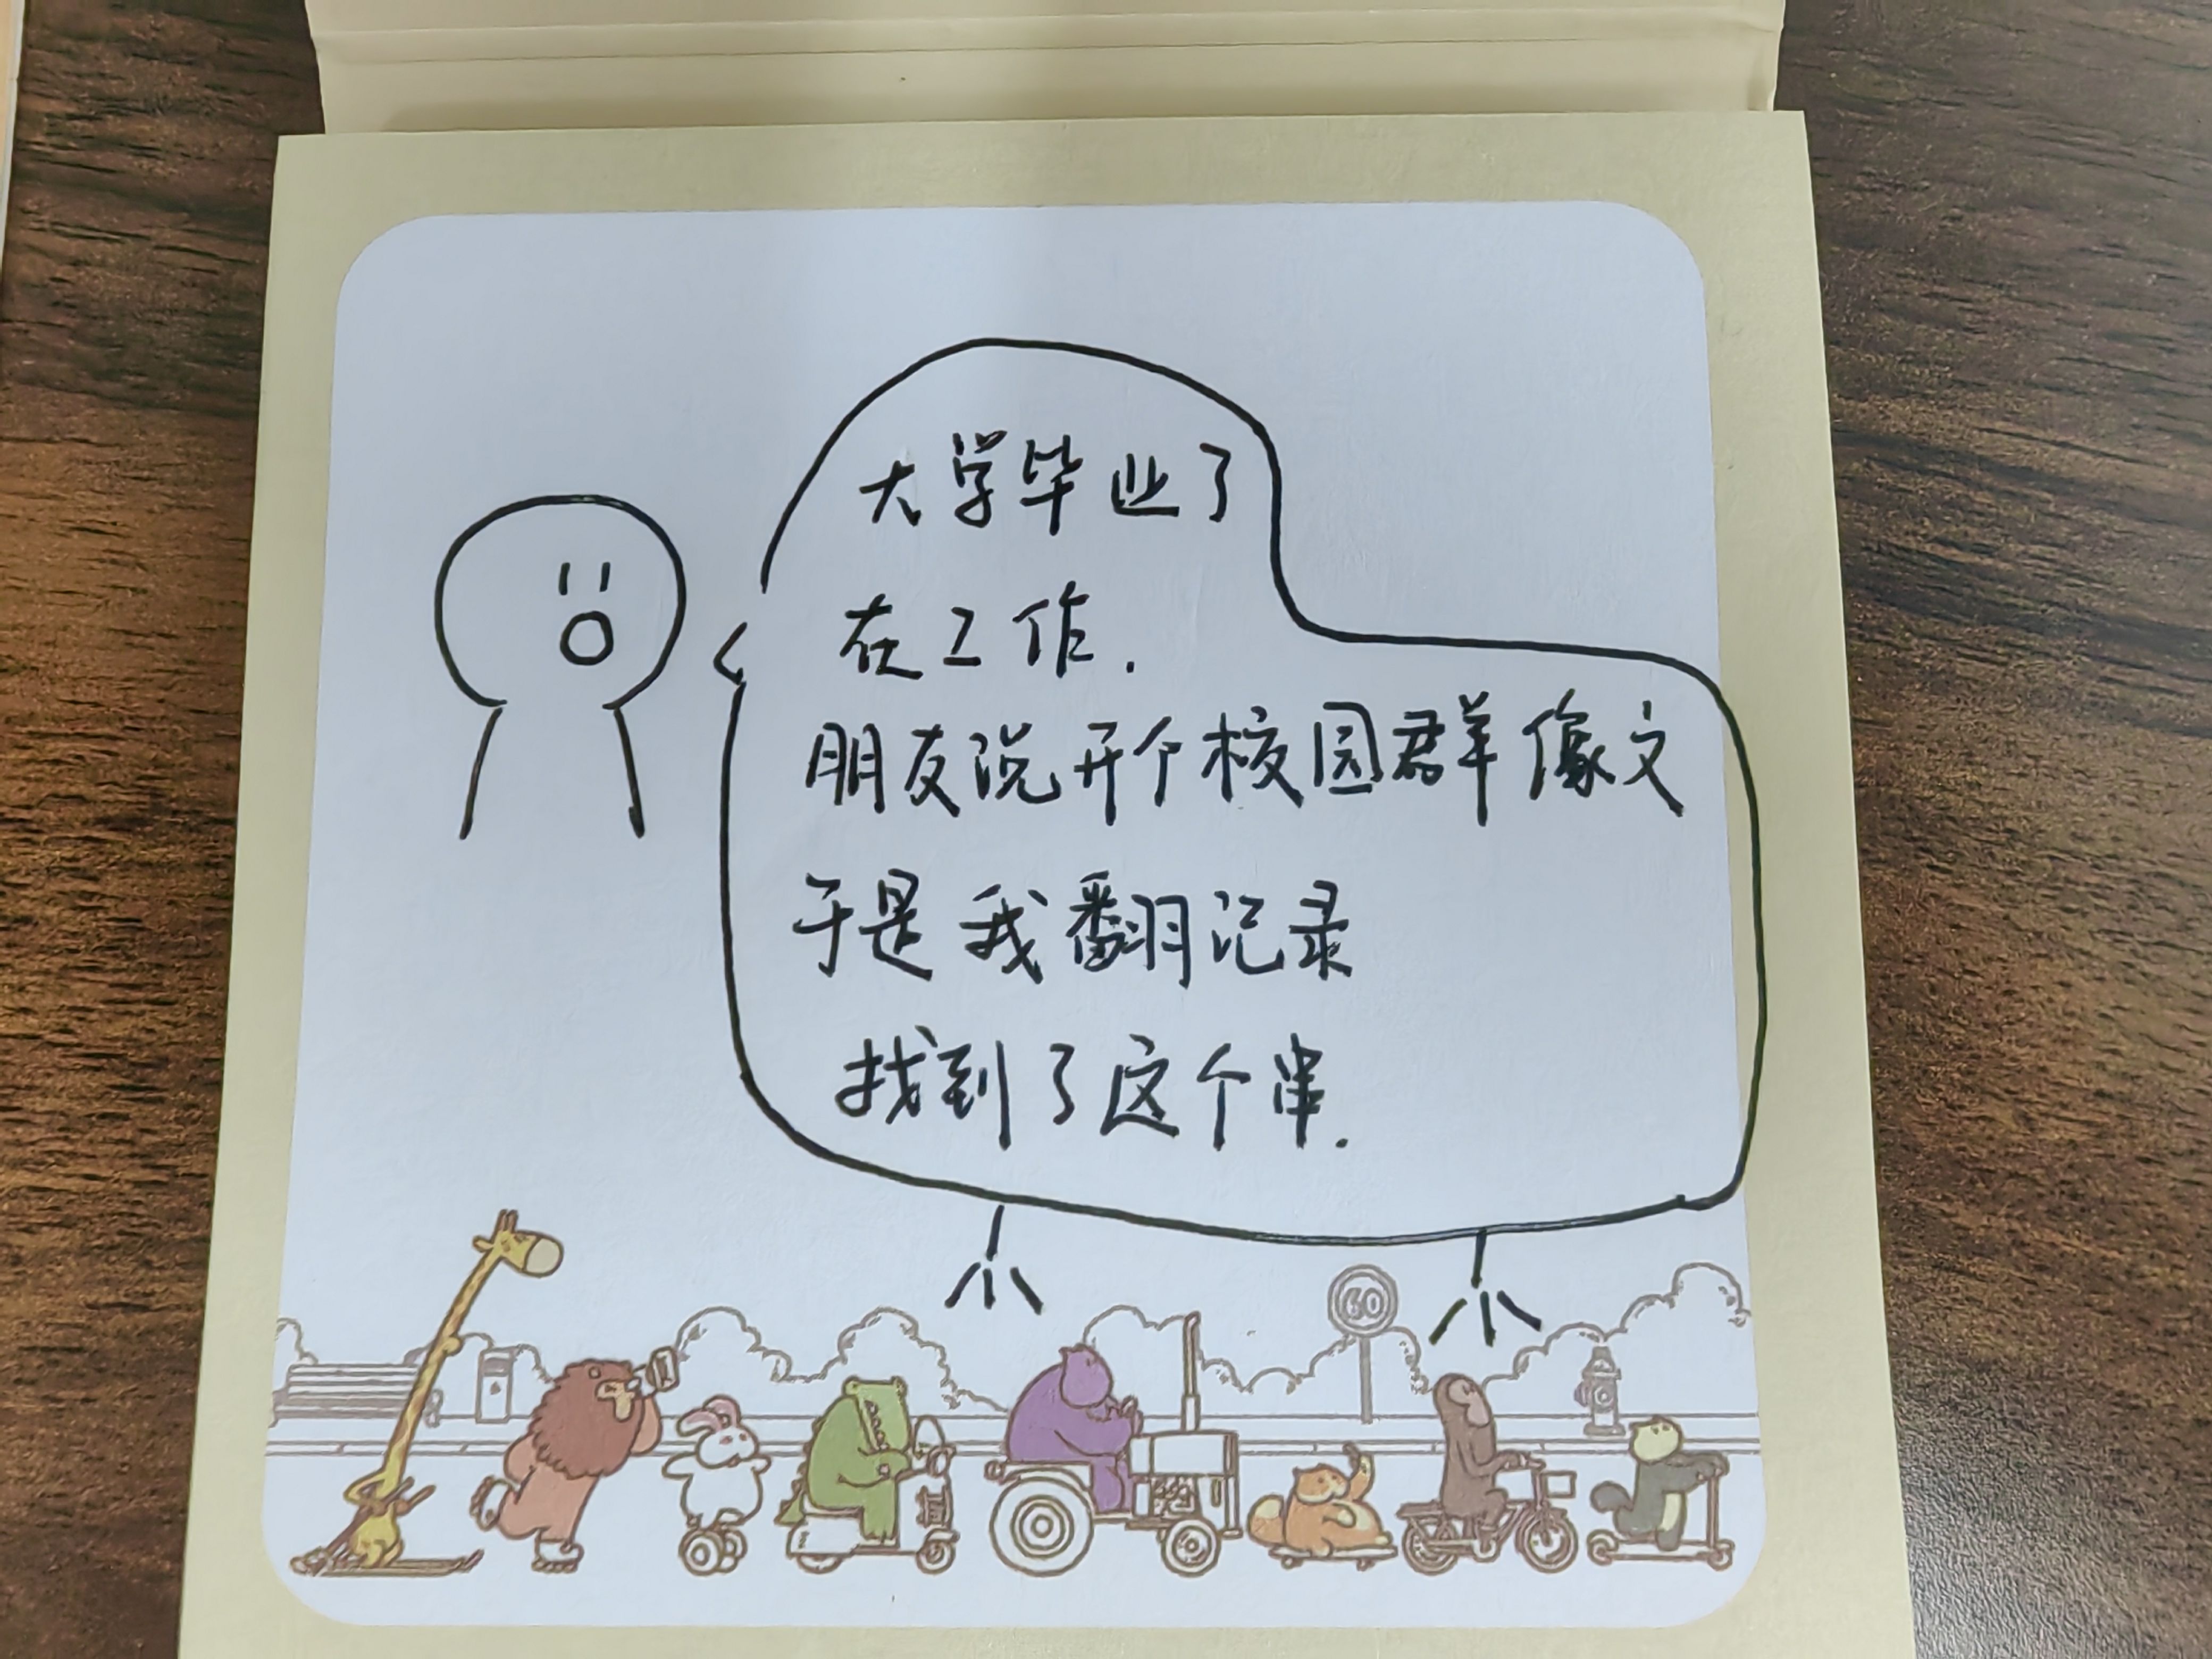 大学毕业了
在工作.
朋友说开个校园群像文
于是我翻记录
找到了这个串.
60